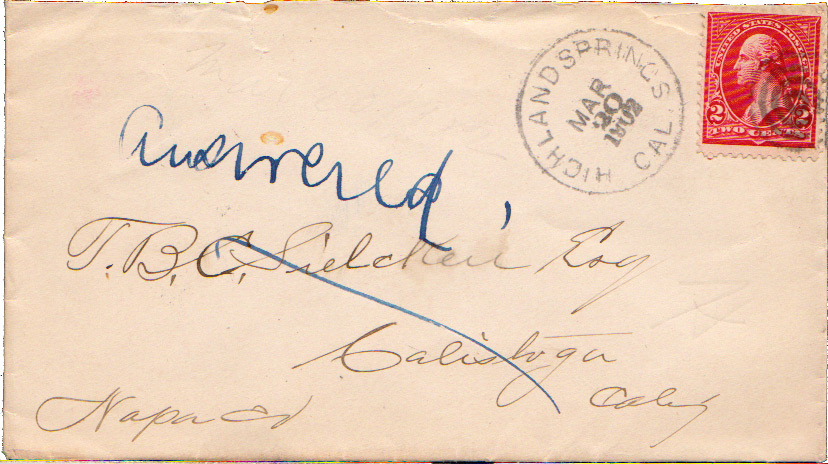 UNITED STATES POSTAGE
2 2
TWO CENTS
HIGHLAND SPRINGS CAL.
MAR
20
1902
Answered,
T. B. C. Sielcken Esq
Calistoga
Napa Co Calif